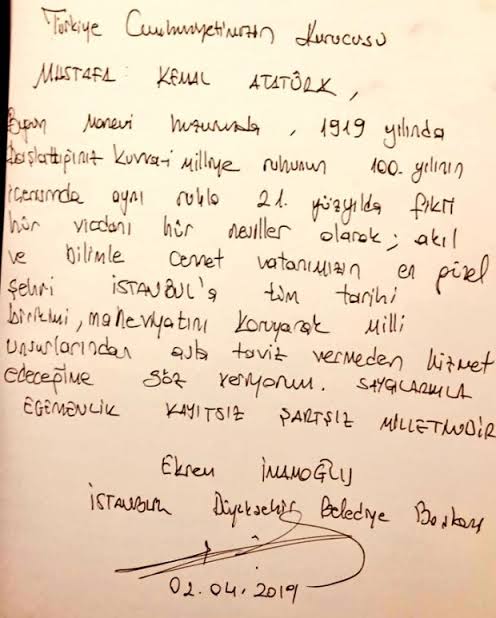 Türkiye Cumhuriyetimizin Kurucusu
MUSTAFA KEMAL ATATÜRK,
Bugün Manevi huzurunuzda, 1919 yılında
Başlattığınız Kuvva-i Milliye ruhunun 100. yılının
içerisinde aynı ruhla 21. yüzyılda fikri
hür vicdanı hür nesiller olarak; akıl
ve bilimle cennet vatanımızın en güzel
şehri İSTANBUL'a tüm tarihi
birikimi, maneviyatını koruyarak milli
unsurlarından asla taviz vermeden hizmet
edeceğime söz veriyorum. SAYGILARIMLA
EGEMENLİK KAYITSIZ ŞARTSIZ MİLLETİNDİR
Ekrem İMAMOĞLU
İSTANBUL Büyükşehir Belediye Başkanı
02.04.2019